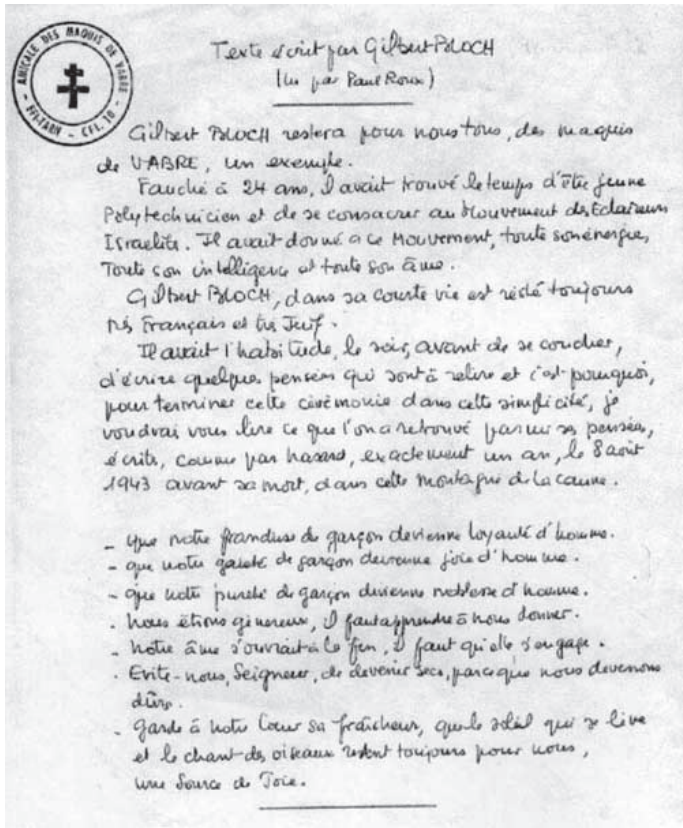 AMICALE DES MAQUIS DE VABRE
FFI-TARN - CFL.10 -
Texte écrit par Gilbert BLOCH
(lu par Paul Roux)
Gilbert BLOCH restera pour nous tous, des maquis
de VABRE, un exemple.
Fauché à 24 ans, il avait trouvé le temps d'être jeune
Polytechnicien et de se consacrer au Mouvement des Eclaireurs
Israelites. Il avait donné à ce Mouvement, toute son énergie,
Toute son intelligence et toute son âme.
Gilbert BLOCH, dans sa courte vie est resté toujours
très Français et très Juif.
Il avait l'habitude, le soir, avant de se coucher,
d'écrire quelques pensées qui sont à relire et c'est pourquoi,
pour terminer cette cérémonie dans cette simplicité, je
voudrais vous lire ce que l'on a retrouvé parmi ses pensées,
écrits, comme par hasard, exactement un an, le 8 août
1943 avant sa mort, dans cette montagne de Lacaune.
- que notre franchise de garçon devienne loyauté d'homme.
- que notre gaieté de garçon devienne joie d'homme.
- que notre pureté de garçon devienne noblesse d'homme.
- Nous étions généreux, il faut apprendre à nous donner.
- Notre âme s'ouvrait à la fin, il faut qu'elle s'engage.
- Evite-nous, Seigneur, de devenir secs, parce que nous devenons
dûrs.
- Garde à notre coeur sa fraîcheur, que le soleil qui se lève
et le chant des oiseaux restent toujours pour nous,
une Source de Joie.